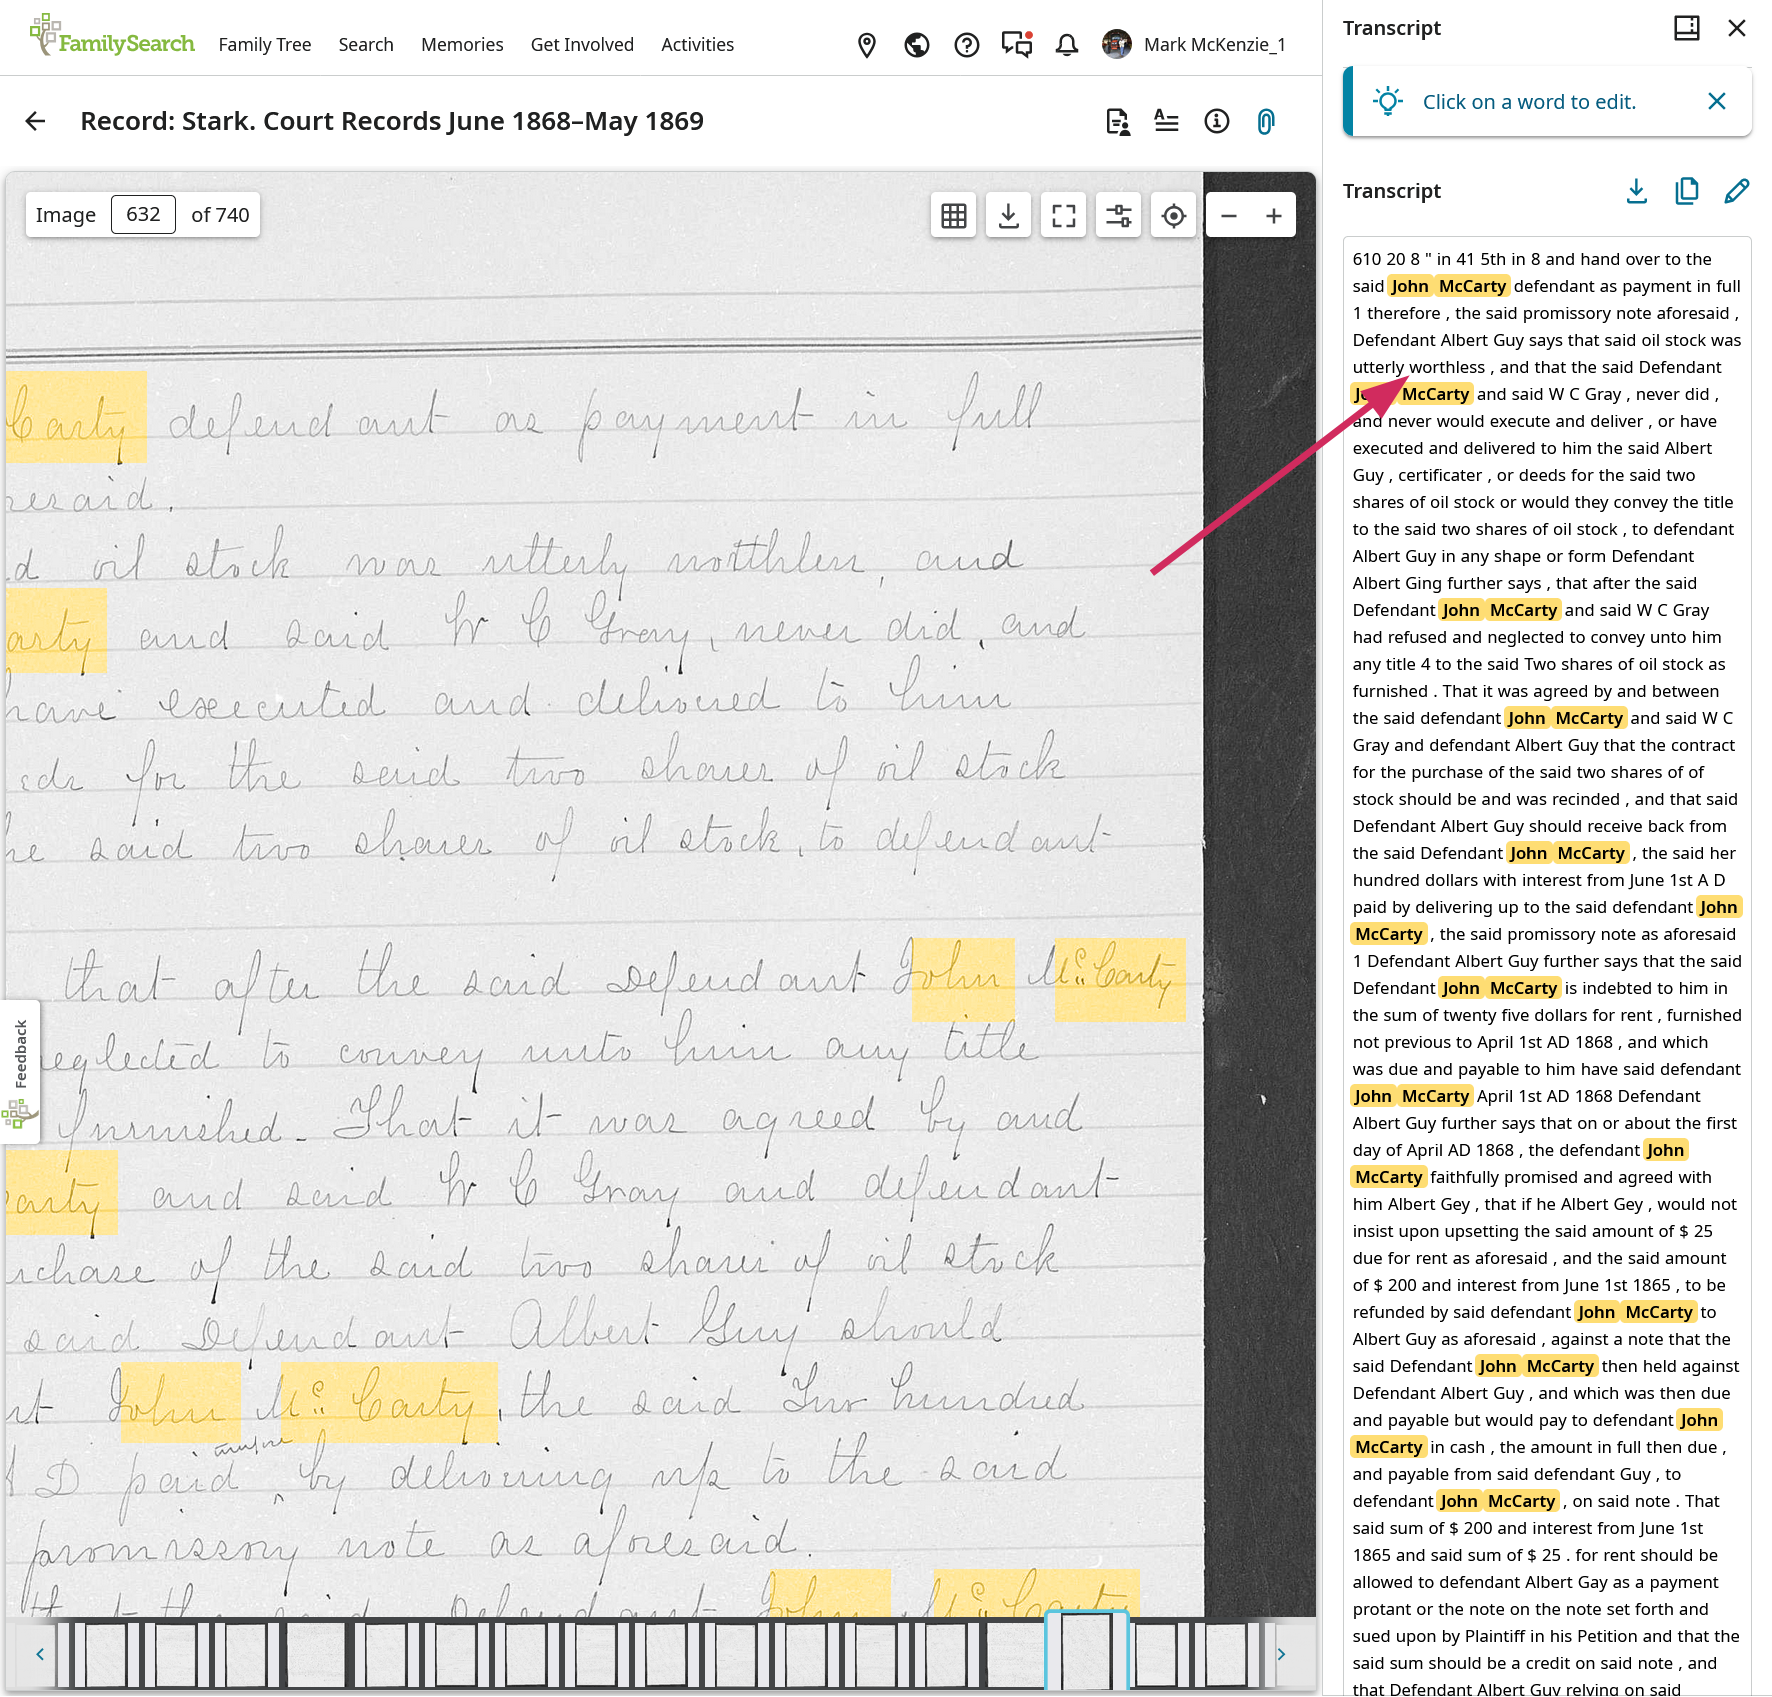 FamilySearch Family Tree Search Memories Get Involved Activities Mark McKenzie_1
Record: Stark. Court Records June 1868–May 1869
Image 632 of 740
Carty defendant as payment in full
resaid.
d oil stock was utterly worthless, and
arty and said W C Gray, never did, and
have executed and delivered to him
eds for the said two shares of oil stock
he said two shares of oil stock, to defendant
that after the said Defendant John McCarty
neglected to convey unto him any title
furnished. That it was agreed by and
arty and said W C Gray and defendant
rchase of the said two shares of oil stock
said Defendant Albert Guy should
nt John McCarty, the said Two hundred
A D paid by delivering up to the said
promissory note as aforesaid.
that the said Defendant John McCarty
Feedback
Transcript
Click on a word to edit.
Transcript
610 20 8 " in 41 5th in 8 and hand over to the
said John McCarty defendant as payment in full
1 therefore , the said promissory note aforesaid ,
Defendant Albert Guy says that said oil stock was
utterly worthless , and that the said Defendant
John McCarty and said W C Gray , never did ,
and never would execute and deliver , or have
executed and delivered to him the said Albert
Guy , certificater , or deeds for the said two
shares of oil stock or would they convey the title
to the said two shares of oil stock , to defendant
Albert Guy in any shape or form Defendant
Albert Ging further says , that after the said
Defendant John McCarty and said W C Gray
had refused and neglected to convey unto him
any title 4 to the said Two shares of oil stock as
furnished . That it was agreed by and between
the said defendant John McCarty and said W C
Gray and defendant Albert Guy that the contract
for the purchase of the said two shares of of
stock should be and was recinded , and that said
Defendant Albert Guy should receive back from
the said Defendant John McCarty , the said her
hundred dollars with interest from June 1st A D
paid by delivering up to the said defendant John
McCarty , the said promissory note as aforesaid
1 Defendant Albert Guy further says that the said
Defendant John McCarty is indebted to him in
the sum of twenty five dollars for rent , furnished
not previous to April 1st AD 1868 , and which
was due and payable to him have said defendant
John McCarty April 1st AD 1868 Defendant
Albert Guy further says that on or about the first
day of April AD 1868 , the defendant John
McCarty faithfully promised and agreed with
him Albert Gey , that if he Albert Gey , would not
insist upon upsetting the said amount of $ 25
due for rent as aforesaid , and the said amount
of $ 200 and interest from June 1st 1865 , to be
refunded by said defendant John McCarty to
Albert Guy as aforesaid , against a note that the
said Defendant John McCarty then held against
Defendant Albert Guy , and which was then due
and payable but would pay to defendant John
McCarty in cash , the amount in full then due ,
and payable from said defendant Guy , to
defendant John McCarty , on said note . That
said sum of $ 200 and interest from June 1st
1865 and said sum of $ 25 . for rent should be
allowed to defendant Albert Gay as a payment
protant or the note on the note set forth and
sued upon by Plaintiff in his Petition and that the
said sum should be a credit on said note , and
that Defendant Albert Guy relying on said